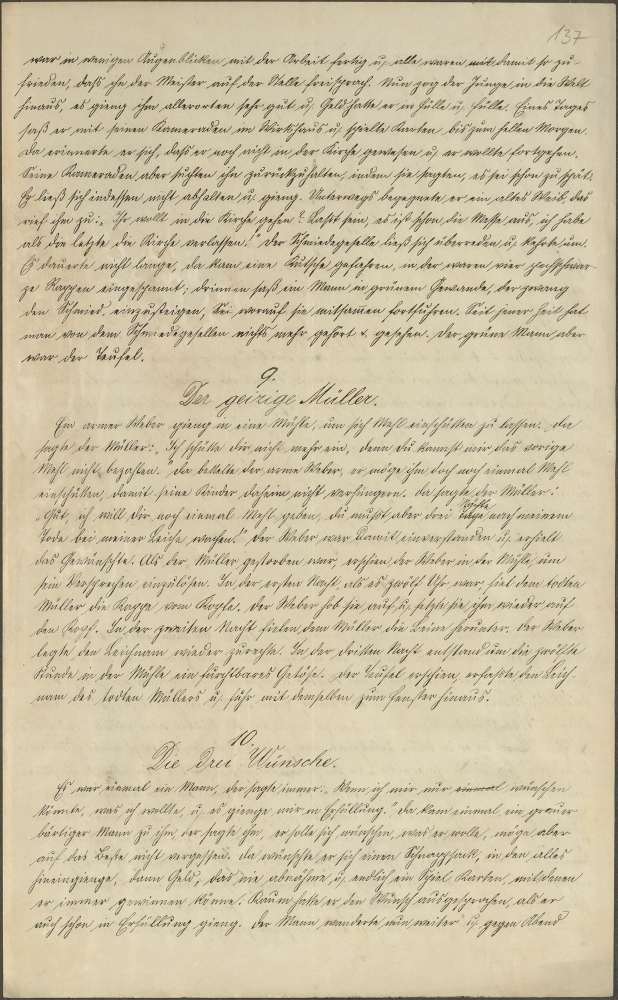 137
war in wenigen Augenblicken mit der Arbeit fertig u. alle waren mit damit so zu-
frieden, daß ihn der Meister auf der Stelle freisprach. Nun zog der Junge in die Welt
hinaus, es gieng ihm allerorten sehr gut u. Geld hatte er in Hülle u. Fülle. Eines Tages
saß er mit seinen Kameraden im Wirtshaus u. spielte Karten bis zum hellen Morgen.
Da erinnerte er sich, daß er noch nicht in der Kirche gewesen u. er wollte fortgehen.
Seine Kameraden aber suchten ihn zurückzuhalten, indem sie sagten, es sei schon zu spät.
Er ließ sich indessen nicht abhalten u. gieng. Unterwegs begegnete er ein altes Weib, das
rief ihm zu: „Ihr wollt in die Kirche gehen? Laßt sein, es ist schon die Messe aus, ich habe
als die letzte die Kirche verlassen." Der Schmiedegeselle ließ sich überreden u. kehrte um.
Es dauerte nicht lange, da kam eine Kutsche gefahren, in der waren vier pechschwar-
ze Rappen eingespannt; drinnen saß ein Mann in grünem Gewande, der zwang
den Schmied, einzusteigen, worauf sie mitsamen fortfuhren. Seit jener Zeit hat
man von dem Schmiedegesellen nichts mehr gehört u. gesehen. Der grüne Mann aber
war der Teufel.
9.
Der geizige Müller.
Ein armer Weber gieng in eine Mühle, um sich Mehl einschütten zu lassen. Da
sagte der Müller: „Ich schütte dir nicht mehr ein, denn du kannst mir das vorige
Mehl nicht bezahlen." Da bettelte der arme Weber, er möge ihm doch noch einmal Mehl
einschütten, damit seine Kinder daheim nicht verhungern. Da sagte der Müller:
„Gut, ich will dir noch einmal Mehl geben, du mußt aber drei Nächte nach meinem
Tode bei meiner Leiche wachen." Der Weber war damit einverstanden u. erhielt
das Gewünschte. Als der Müller gestorben war, erschien der Weber in der Mühle, um
sein Versprechen einzulösen. In der ersten Nacht als es zwölf Uhr war, fiel dem todten
Müller die Kappe vom Kopfe. Der Weber hob sie auf u. setzte sie ihm wieder auf
den Kopf. In der zweiten Nacht fielen dem Müller die Beine herunter. Der Weber
legte den Leichnam wieder zurecht. In der dritten Nacht entstand um die zwölfte
Stunde in der Mühle ein furchtbares Getöse. Der Teufel erschien, erfaßte den Leich-
nam des todten Müllers u. fuhr mit demselben zum Fenster hinaus.
10.
Die drei Wünsche.
Es war einmal ein Mann, der sagte immer: „Wenn ich mir nur einmal wünschen
könnte, was ich wollte, u. es gienge mir in Erfüllung." Da kam einmal ein grauer
bärtiger Mann zu ihm, der sagte ihm, er solle sich wünschen, was er wolle, möge aber
auf das Beste nicht vergessen. Da wünschte er sich einen Schnappsack, in den alles
hineingienge, dann Geld, das nie abnähme, u. endlich ein Spiel Karten, mit denen
er immer gewinnen könne. Kaum hatte er den Wunsch ausgesprochen, als er
auch schon in Erfüllung gieng. Der Mann wanderte nun weiter u. gegen Abend